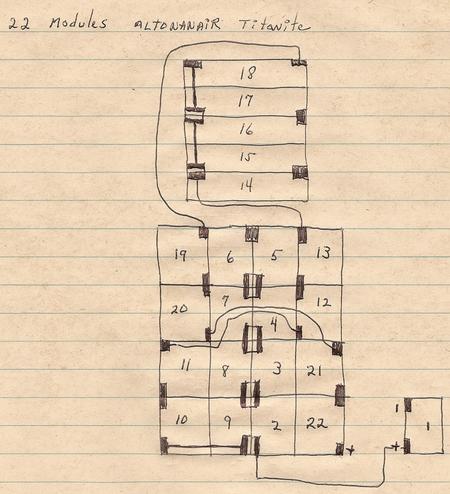 22 Modules ALTONANAIR Titanite
18
17
16
15
14
19 6 5 13
20 7 12
4
11 8 3 21
10 9 2 22 +
1 + 1